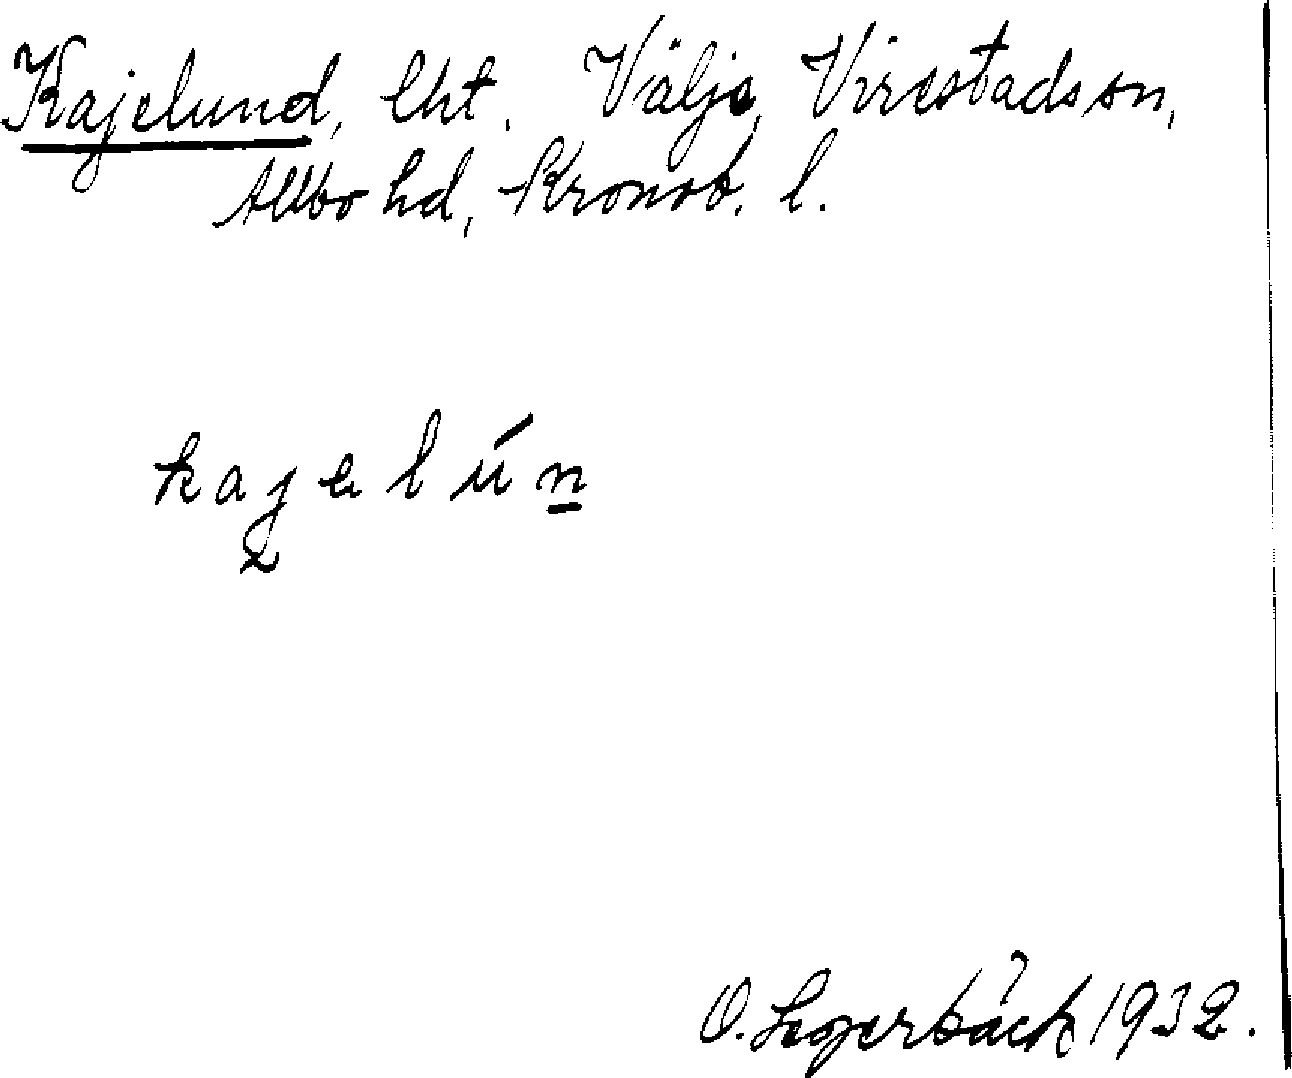 Kajelund, lht. Välje, Virestads sn,
Allbo hd, Kronob. l.
kajelún
O. Lagerbäck 1932.